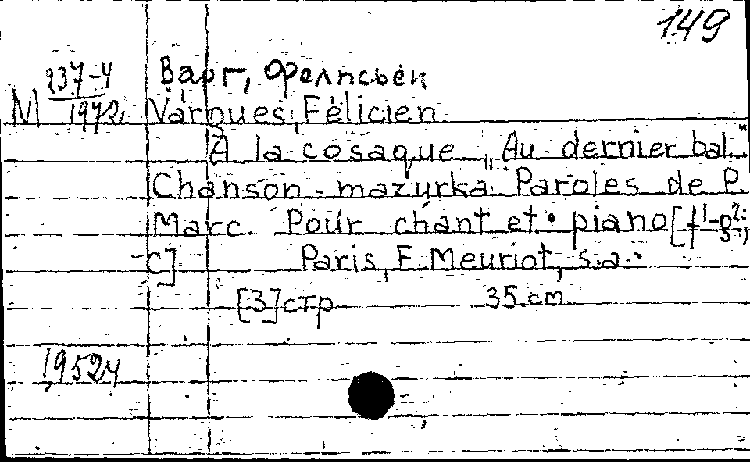 149
М 937-4 Варг, Фелисьен
1972 Vargues, Félicien
A la cosaque „Au dernier bal."
Chanson-mazurka. Paroles de P.
Marc. Pour chant et piano [f¹-g²;
C] Paris, F. Meuriot, s.a.
[3] стр 35 cm
19524